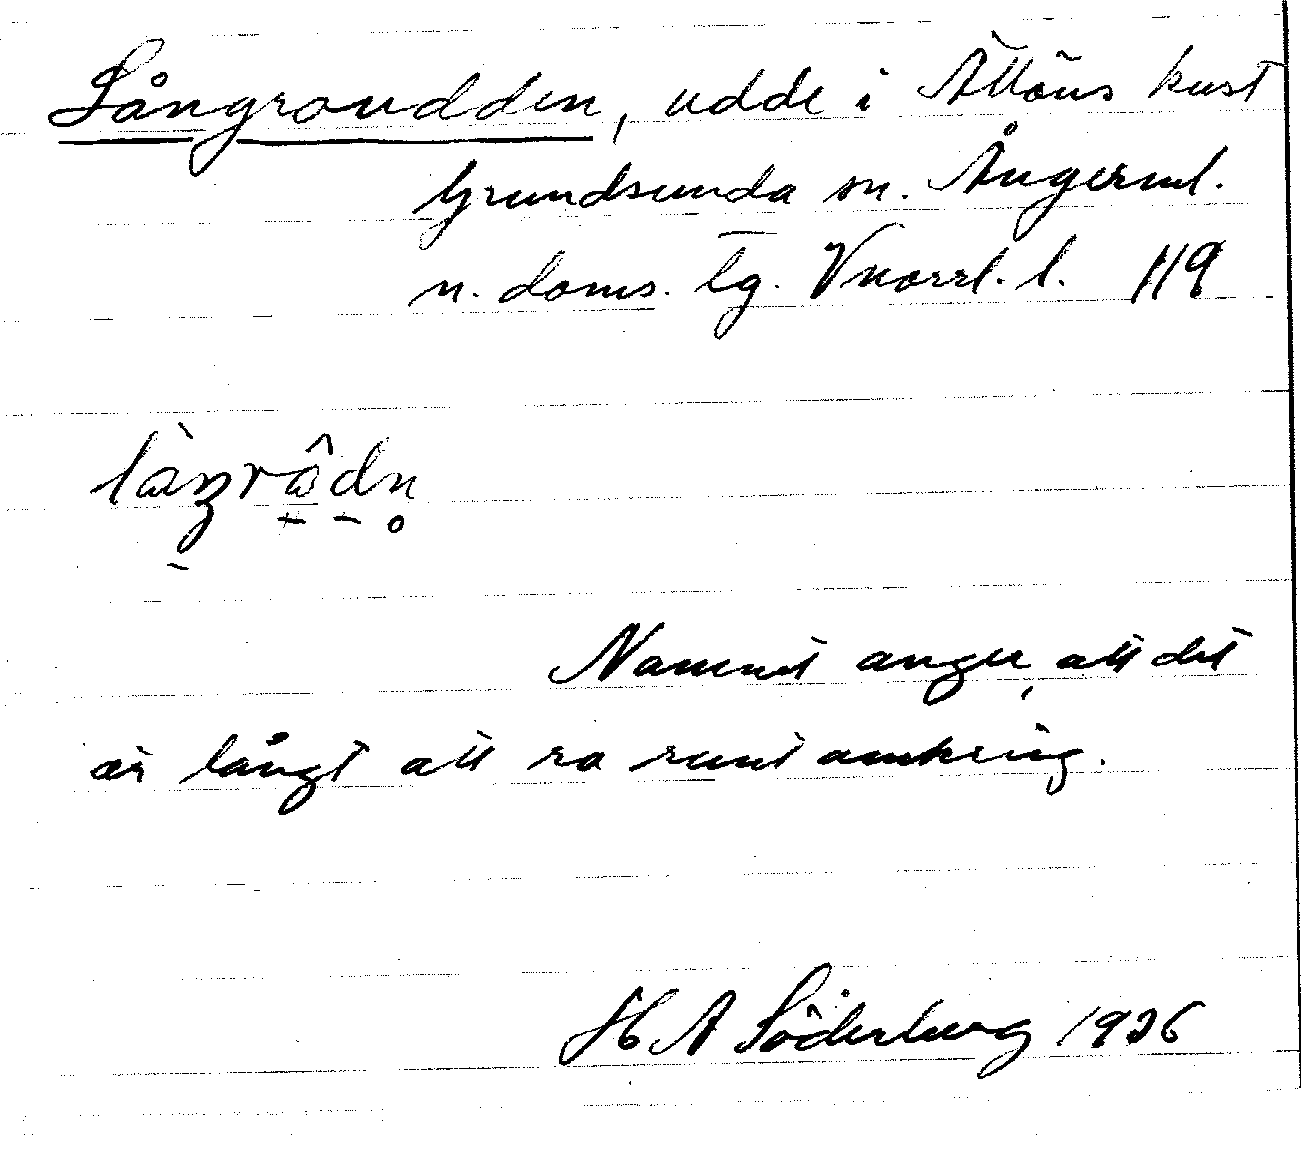 Långroudden, udde i Ällöns kust
Grundsunda sn. Ångerml.
n. doms. lg. Vnorrl. l. 119
Namnet anger, att det
är långt att ro runt omkring.
H A Söderberg 1926